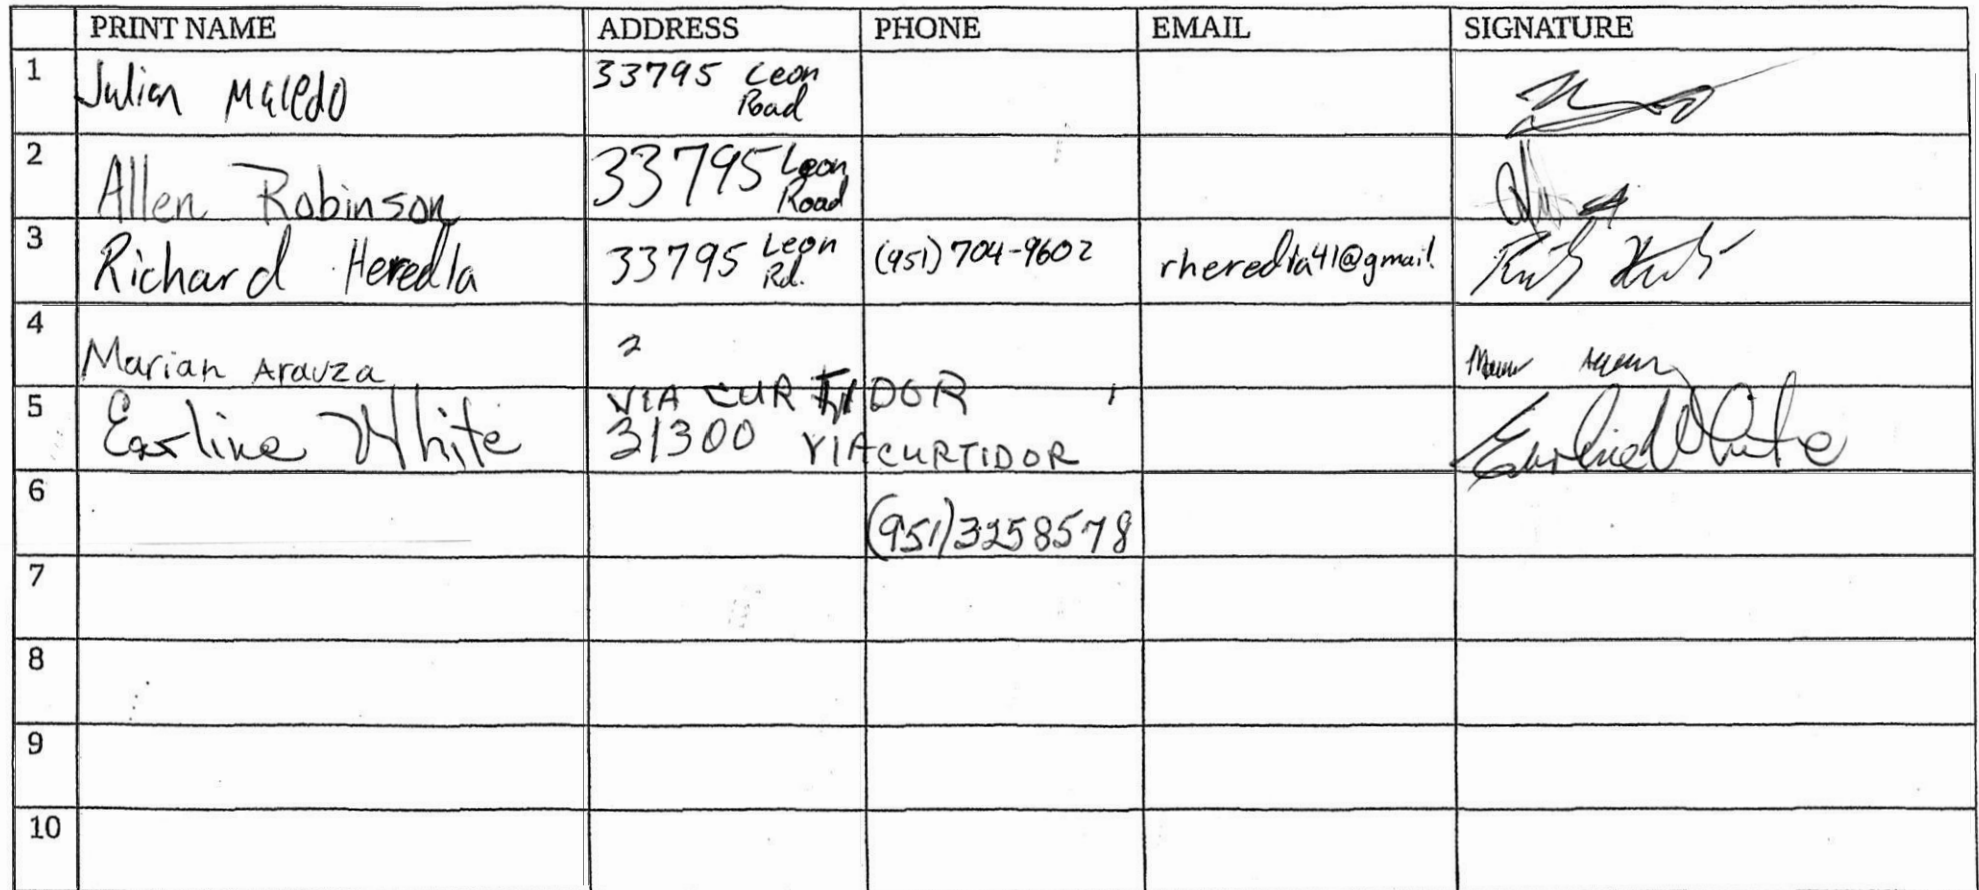 PRINT NAME ADDRESS PHONE EMAIL SIGNATURE
1 Julian Macedo 33795 Leon
Road
2 Allen Robinson 33795 Leon
Road
3 Richard Heredia 33795 Leon
Rd. (951) 704-9602 rheredia41@gmail.
4 Marian Arauza 2
VIA CURTIDOR
5 Earline White 31300 VIA CURTIDOR Earline White
6 (951)3258578
7
8
9
10